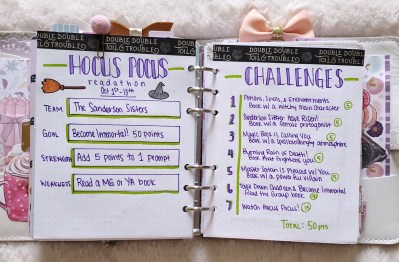 DOUBLE DOUBLE
TOIL & TROUBLE
DOUBLE DOUBLE
TOIL & TROUBLE
HOCUS POCUS
readathon
Oct 1st-13th
TEAM
The Sanderson Sisters
GOAL
Become Immortal! 50 points
STRENGTH
Add 5 points to 1 prompt
WEAKNESS
Read a MG or YA book
DOUBLE DOUBLE
TOIL & TROUBLE
DOUBLE DOUBLE
TOIL & TROUBLE
CHALLENGES
1 Potions, Spells, & Enchantments
Book w/ a witchy main character 5
2 Sanderson Sisters Have Risen!
Book w/ a female protagonist 5
3 Magic Book is Calling You
Book w/ a atmosphere 5
4 Burning Rain of Death!
Book that frightens you 5
5 Master Satan is Pleased w/ You
Book w/ a powerful villain 5
6 Children & Become Immortal
Read the Group book
7 Watch Hocus Pocus!
TOTAL: 50 pts